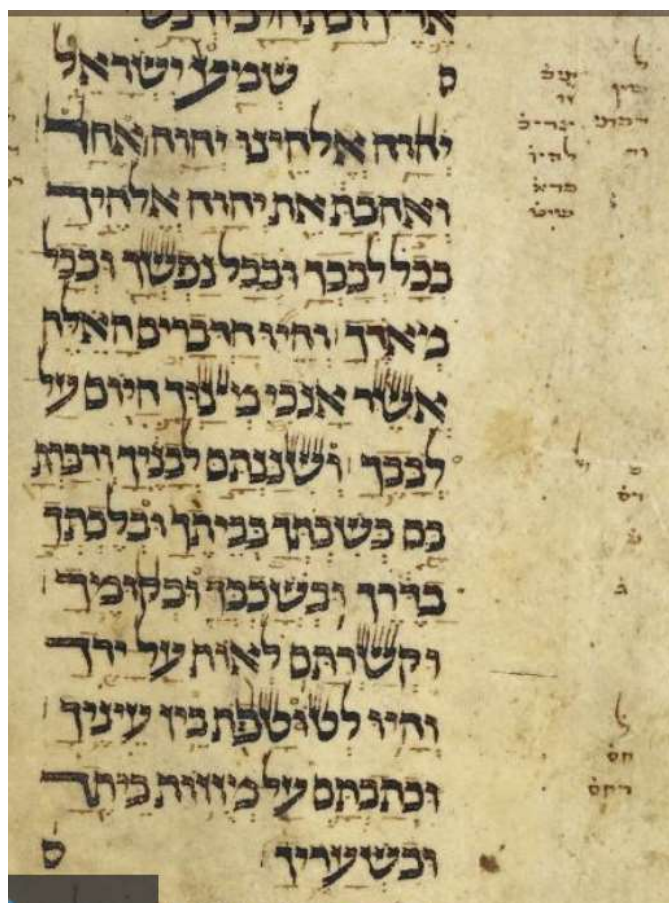 ארץ זבת חלב ודבש
ס שמע ישראל
יהוה אלהינו יהוה אחד
ואהבת את יהוה אלהיך
בכל לבבך ובכל נפשך ובכל
מאדך והיו הדברים האלה
אשר אנכי מצוך היום על
לבבך ושננתם לבניך ודברת
בם בשבתך בביתך ובלכתך
בדרך ובשכבך ובקומך
וקשרתם לאות על ידך
והיו לטוטפת בין עיניך
וכתבתם על מזוזות ביתך
ובשעריך ס